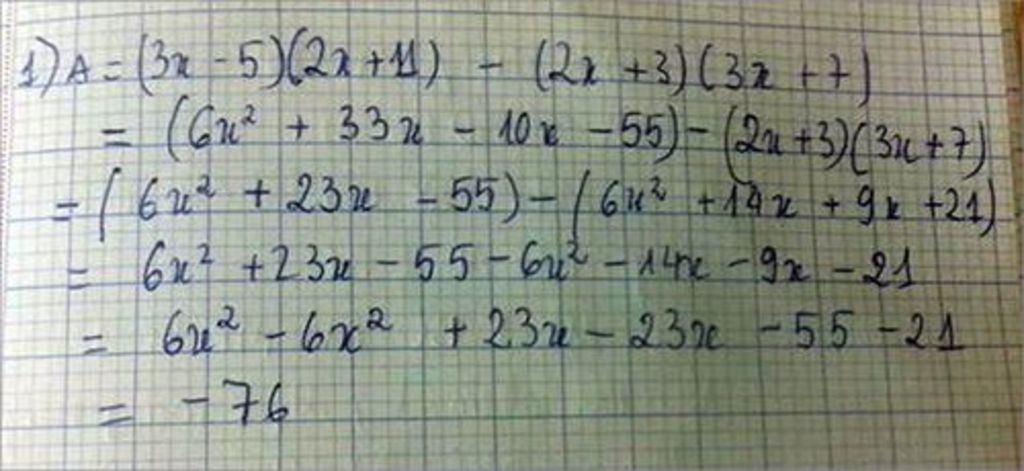 1) A = (3x - 5)(2x + 11) - (2x + 3)(3x + 7)
= (6x² + 33x - 10x - 55) - (2x + 3)(3x + 7)
= (6x² + 23x - 55) - (6x² + 14x + 9x + 21)
= 6x² + 23x - 55 - 6x² - 14x - 9x - 21
= 6x² - 6x² + 23x - 23x - 55 - 21
= - 76